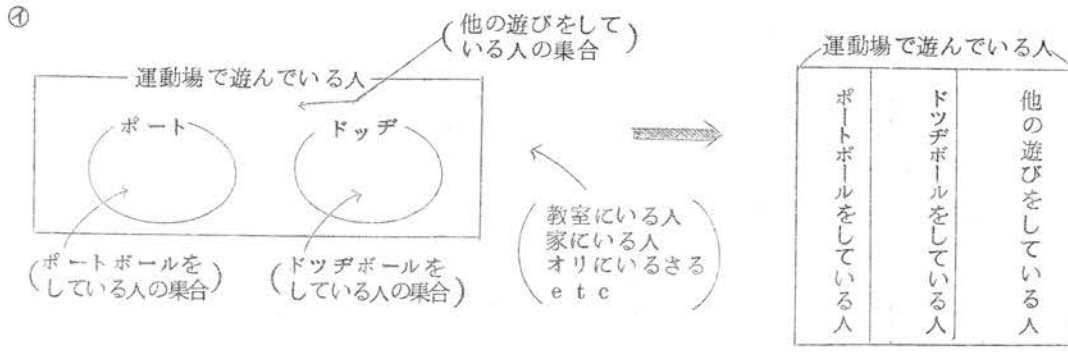 ㋑
(他の遊びをして
いる人の集合)
運動場で遊んでいる人
ポート
ドッヂ
(ポートボールを
している人の集合)
(ドッヂボールを
している人の集合)
教室にいる人
家にいる人
オリにいるさる
etc
運動場で遊んでいる人
ポートボールをしている人
ドッヂボールをしている人
他の遊びをしている人